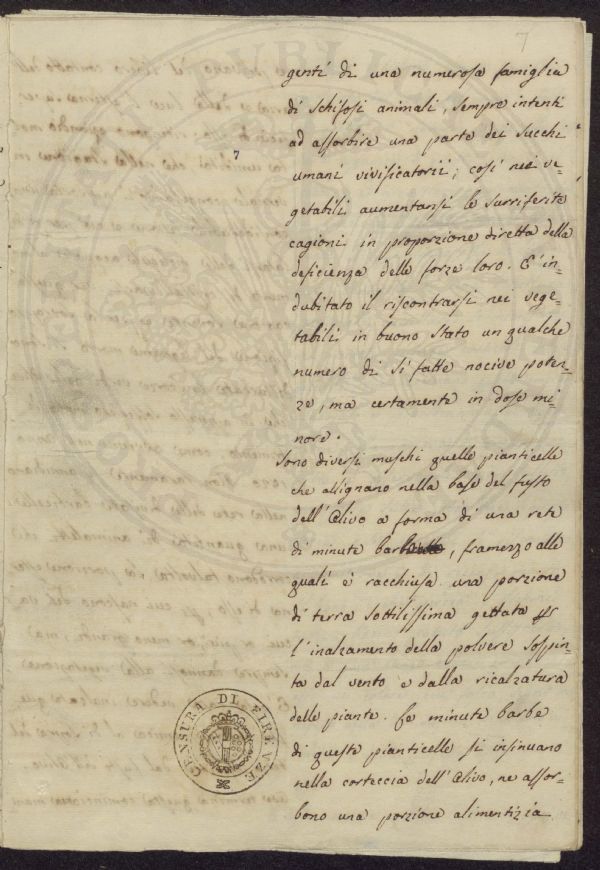 7
7
genti di una numerosa famiglia
di schifosi animali, sempre intenti
ad assorbire una parte dei succhi
umani vivificatorii; così nei ve-
getabili aumentansi le surriferite
cagioni in proporzione diretta della
deficienza delle forze loro. E' in-
dubitato il riscontrarsi nei vege-
tabili in buono stato un qualche
numero di sì fatte nocive poten-
ze, ma certamente in dose mi-
nore.
Sono diversi muschi quelle pianticelle
che allignano nella base del fusto
dell'Olivo a forma di una rete
di minute barbe, framezzo alle
quali è racchiusa una porzione
di terra sottilissima gettata per
l'inalzamento della polvere sospin-
ta dal vento e dalla ricalzatura
delle piante. Le minute barbe
di queste pianticelle si insinuano
nella corteccia dell'Olivo, ne assor-
bono una porzione alimentizia
CENSURA DI FIRENZE